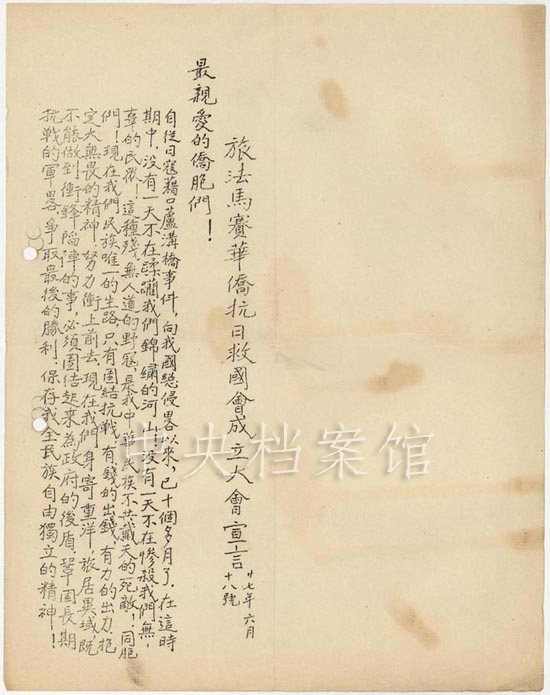 旅法馬賽華僑抗日救國會成立大會宣言
廿七年六月
十八號
最親愛的僑胞們！
自從日寇藉口蘆溝橋事件，向我國總侵畧以来，已十個多月了．在這時
期中，没有一天不在蹂躪我們錦繡的河山，没有一天不在慘殺我們無
辜的民衆！這種殘無人道的野寇，是我中華民族不共戴天的死敵！同胞
們！現在我們民族唯一的生路，只有團结抗戰．有錢的出錢，有力的出力．抱
定大無畏的精神，努力衝上前去，現在我們身寄重洋，旅居異域，既
不能做到衝鋒陷陣的事，必須團结起來，為政府的後盾，鞏固長期
抗戰的軍畧，爭取最後的勝利，保存我全民族自由獨立的精神！
中央档案馆